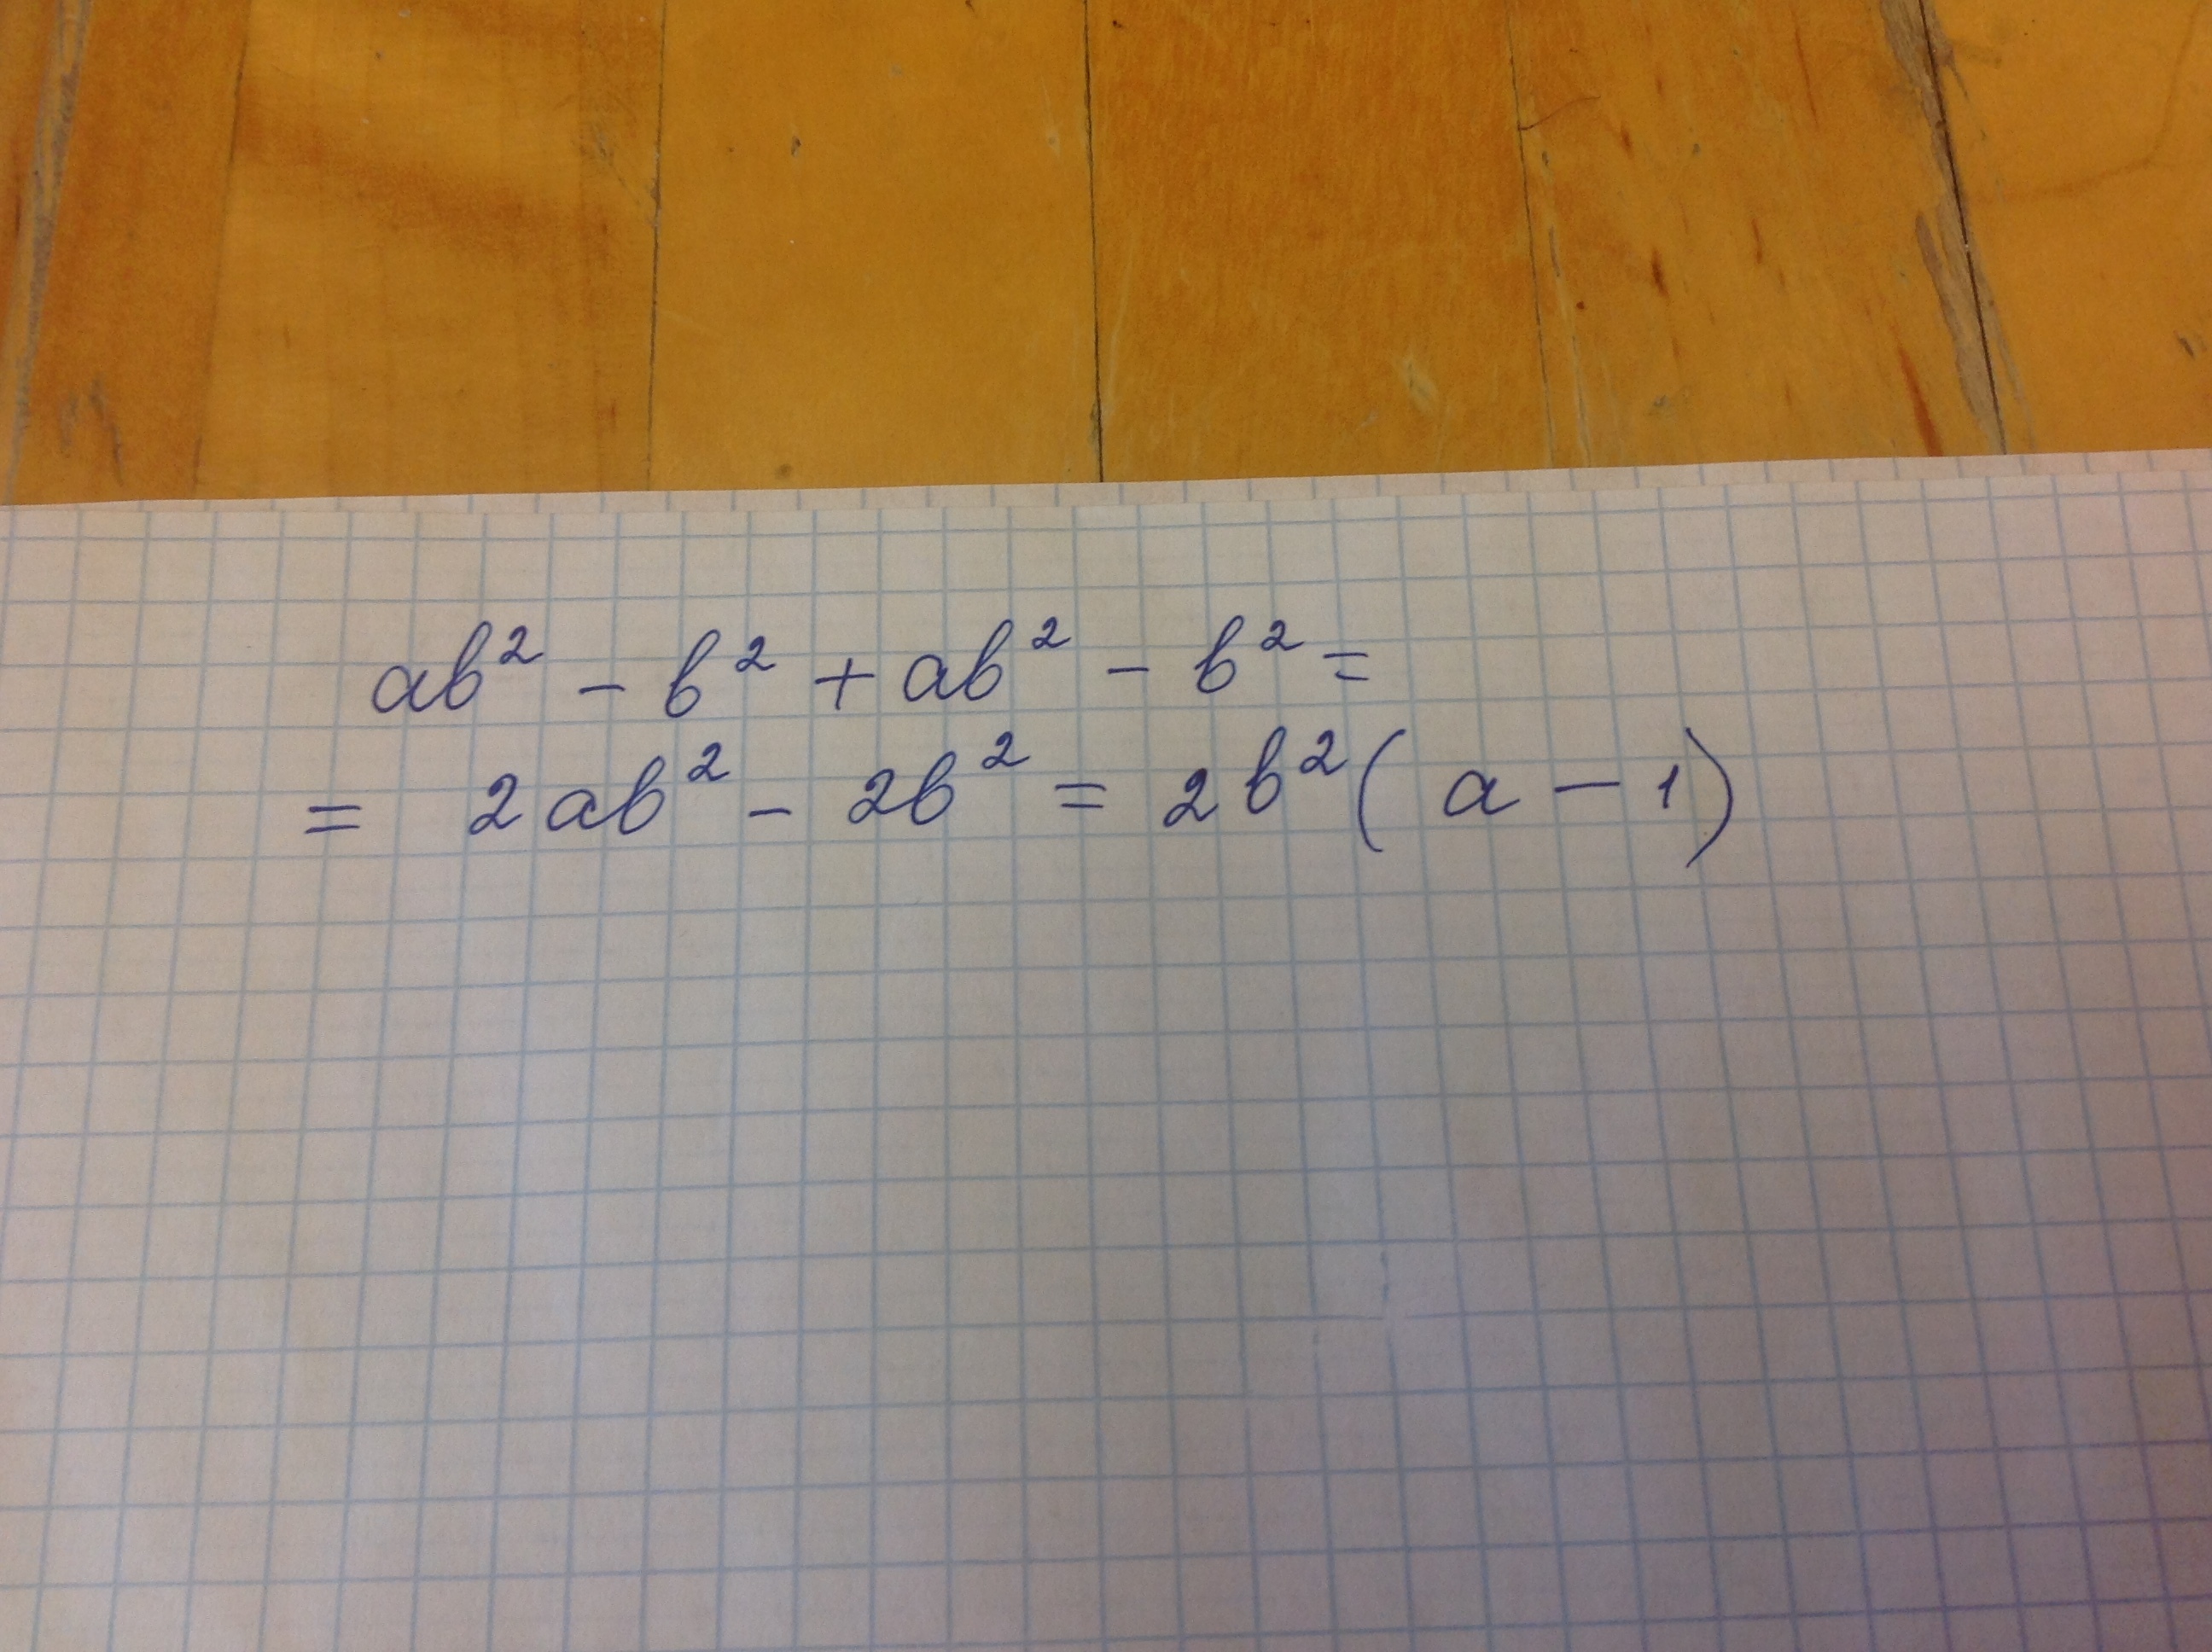 ab² - b² + ab² - b² =
= 2ab² - 2b² = 2b²(a - 1)